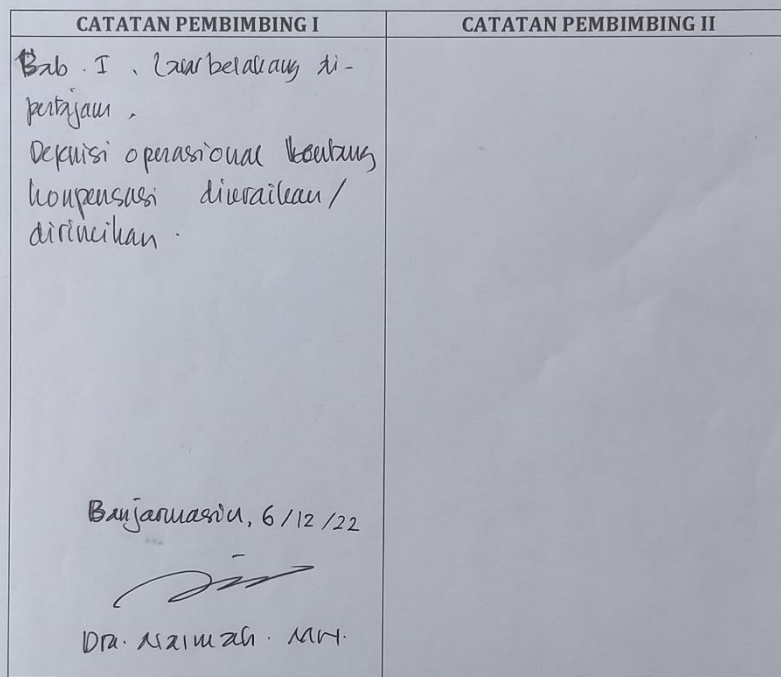 CATATAN PEMBIMBING I
CATATAN PEMBIMBING II
Bab. I. Latar belakang di-
pertajam.
Definisi operasional tentang
kompensasi diuraikan/
dirincikan.
Banjarmasin, 6/12/22
Dra. Naimah. MH.